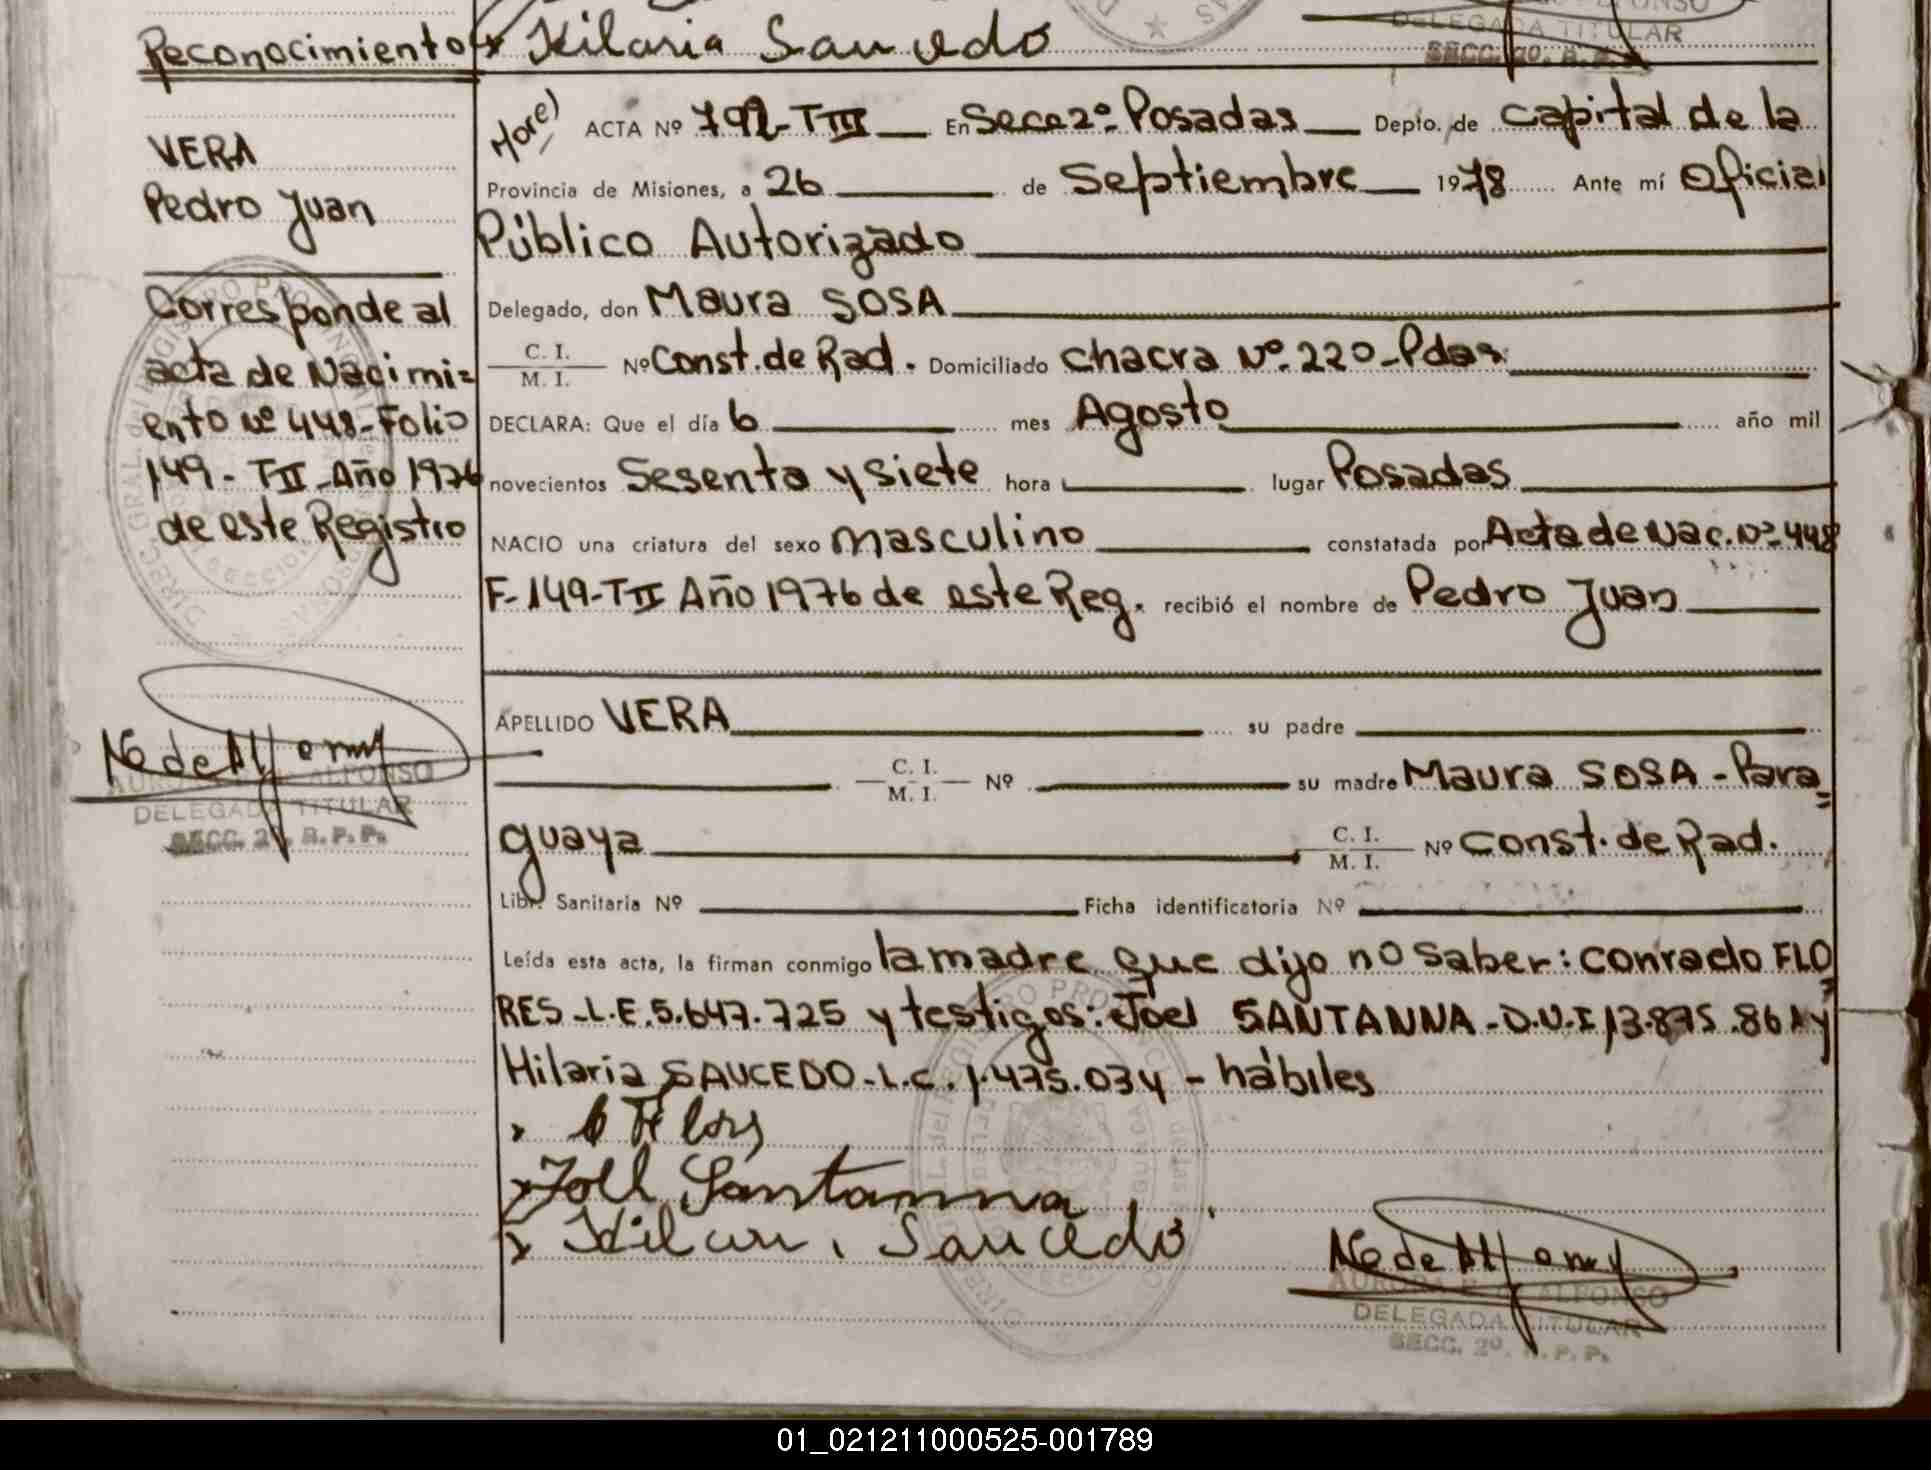 Reconocimiento Hilaria Saucedo
DELEGADA TITULAR
SECC. 2º. R.P.P.
VERA
Pedro Juan
Corresponde al
acta de Nacimi=
ento Nº 448-Folio
149-TII-Año 1976
de este Registro
Ne de Alfonso
AURORA ALFONSO
DELEGADA TITULAR
SECC. 2º. R.P.P.
ACTA Nº 792-TIII En Secc 2º-Posadas Depto. de Capital de la
Provincia de Misiones, a 26 de Septiembre 1978 Ante mí Oficial
Público Autorizado
Delegado, don Maura SOSA
C. I. / M. I. Nº Const. de Rad. Domiciliado Chacra Nº.220-Pdas.
DECLARA: Que el día 6 mes Agosto año mil
novecientos Sesenta y siete hora lugar Posadas
NACIO una criatura del sexo masculino constatada por Acta de Nac. Nº 448
F-149-TII Año 1976 de este Reg. recibió el nombre de Pedro Juan
APELLIDO VERA su padre
C. I. / M. I. Nº su madre Maura SOSA-Para=
guaya C. I. / M. I. Nº Const. de Rad.
Libr. Sanitaria Nº Ficha identificatoria Nº
Leída esta acta, la firman conmigo la madre que dijo no saber: Conrado FLO=
RES-L.E.5.647.725 y testigos: Joel SANTANNA-D.N.I 13.875.861 y
Hilaria SAUCEDO-L.C.1.475.034-hábiles
Joel Santanna
Hilari Saucedo
Ne de Alfonso
AURORA ALFONSO
DELEGADA TITULAR
SECC. 2º. R.P.P.
01_021211000525-001789